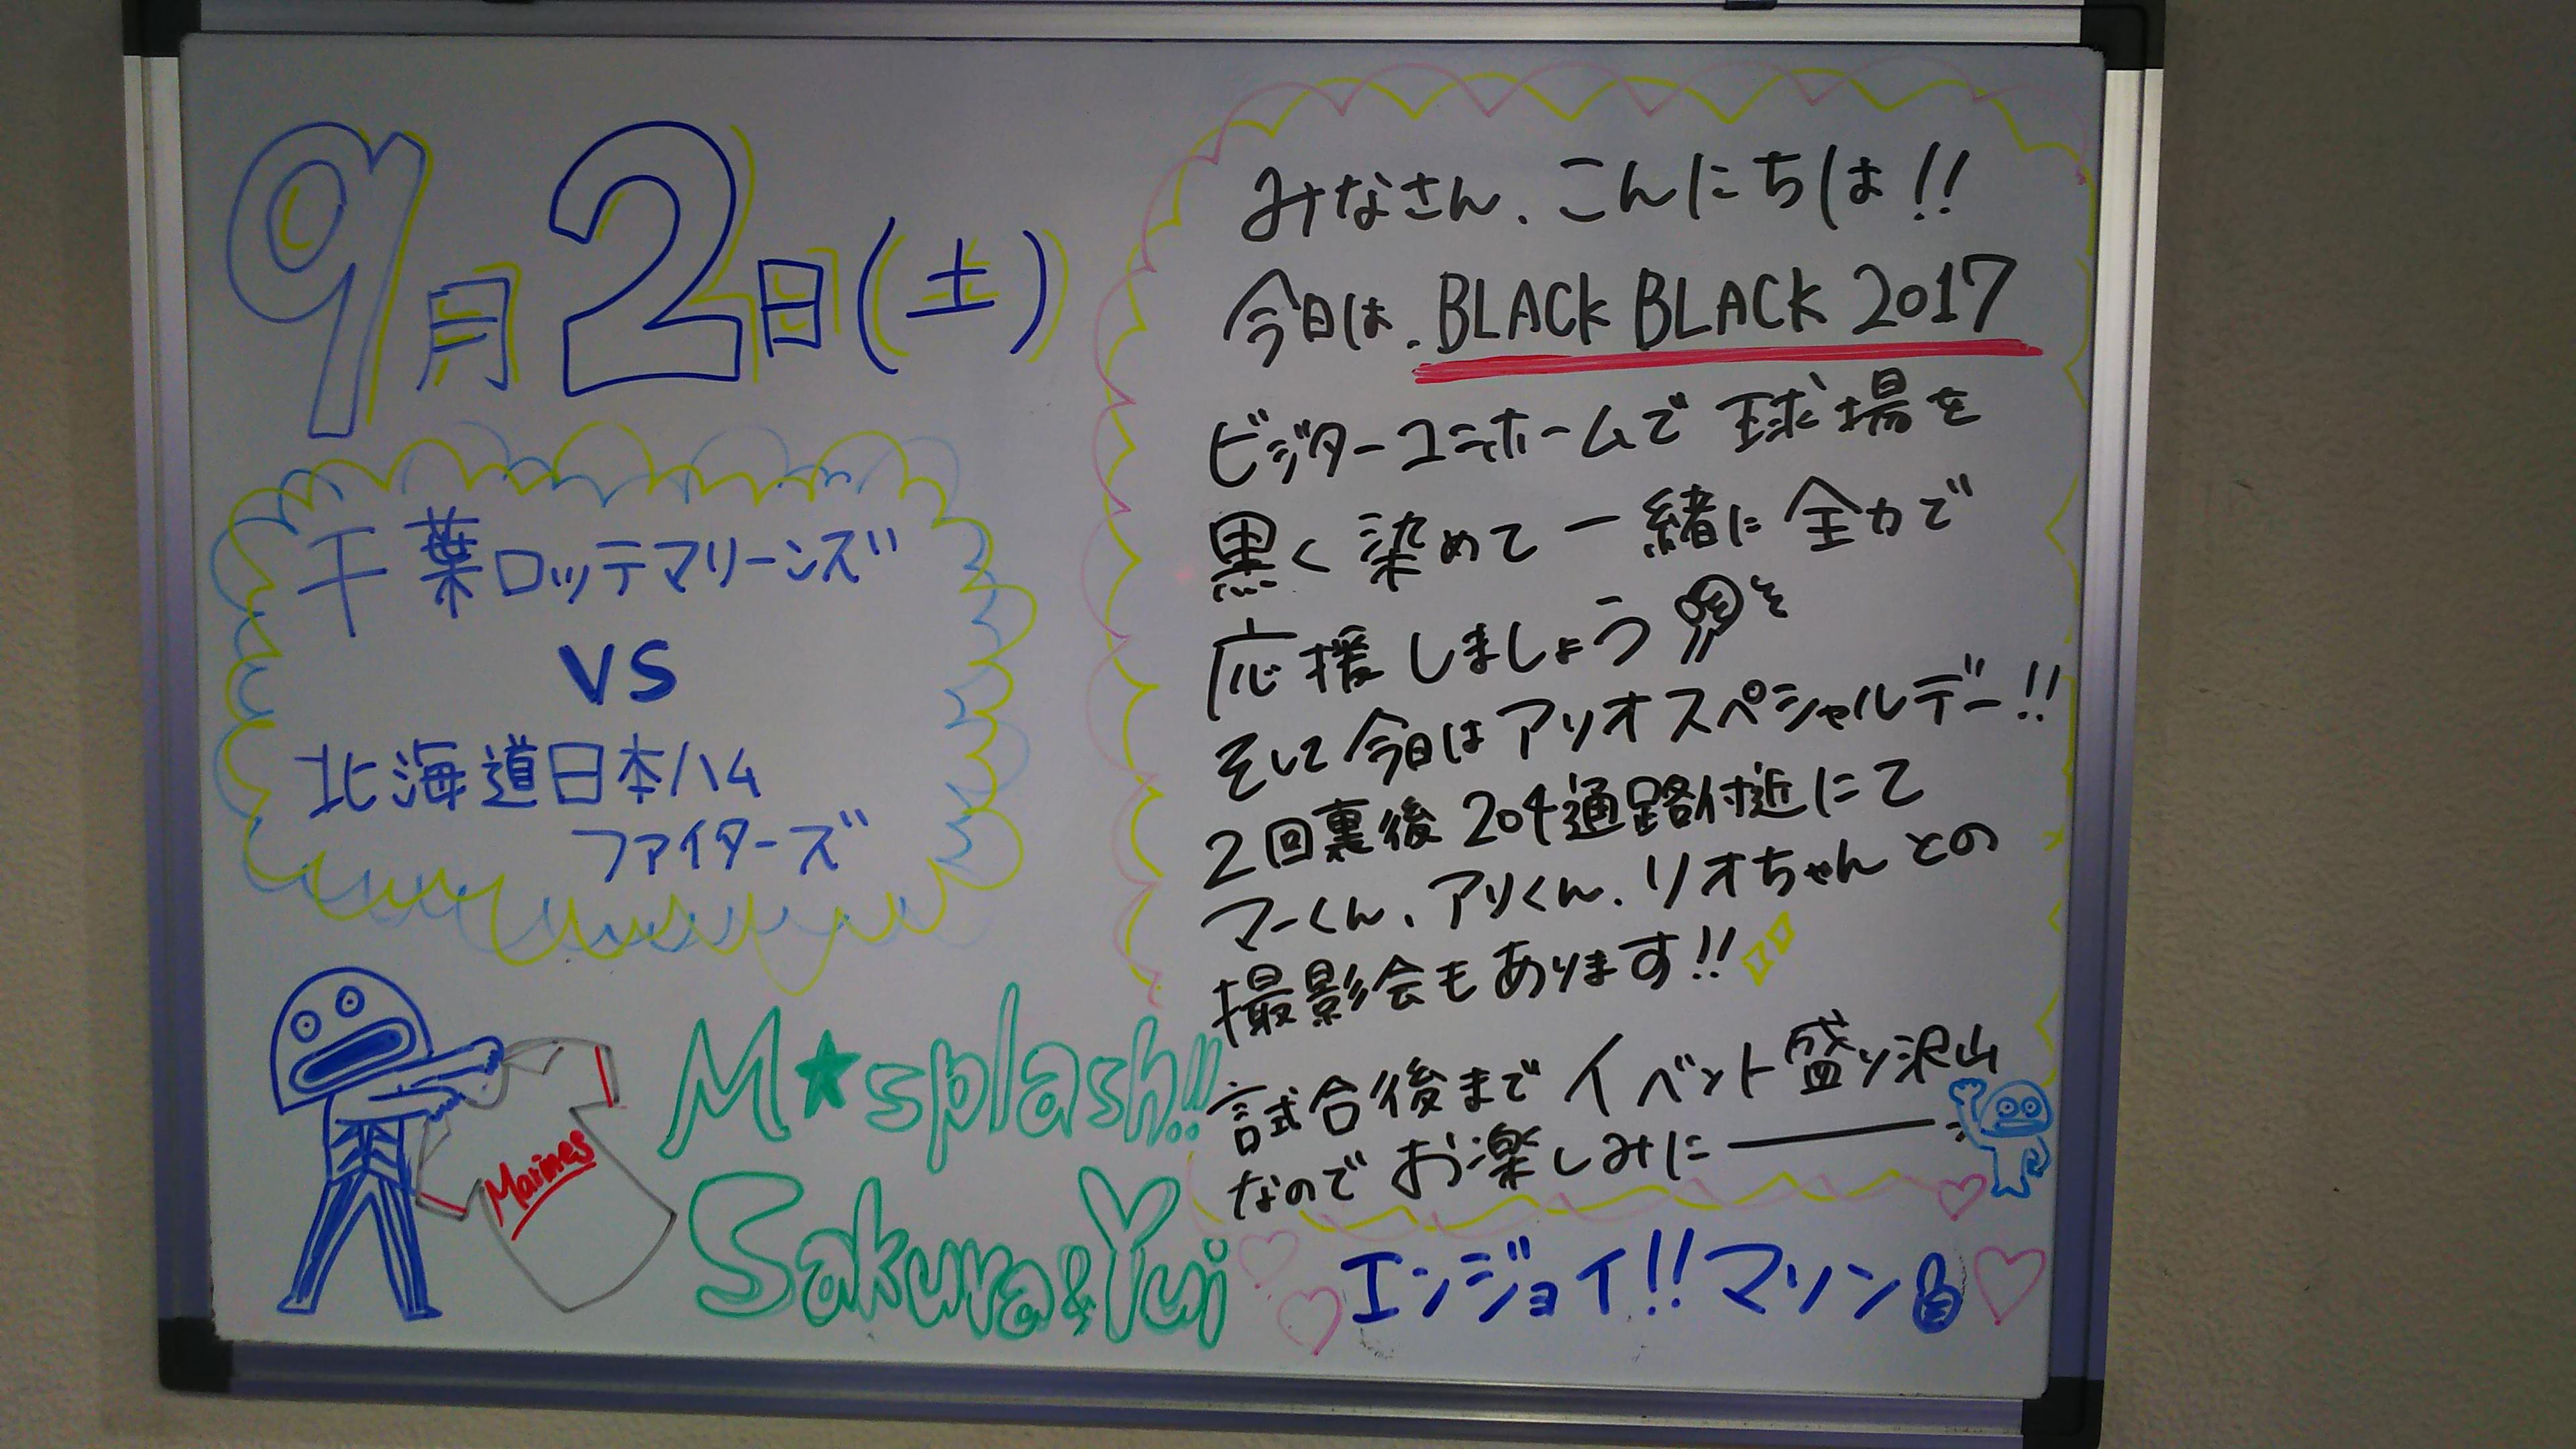 9月2日(土)
千葉ロッテマリーンズ
VS
北海道日本ハム
ファイターズ
みなさん、こんにちは!!
今日は、BLACK BLACK 2017
ビジターユニホームで球場を
黒く染めて一緒に全力で
応援しましょう
そして今日はアリオスペシャルデー!!
2回裏後204通路付近にて
マーくん、アリくん、リオちゃんとの
撮影会もあります!!
試合後までイベント盛り沢山
なのでお楽しみに――
Marines
M★splash!!
Sakura&Yui
エンジョイ!!マリン